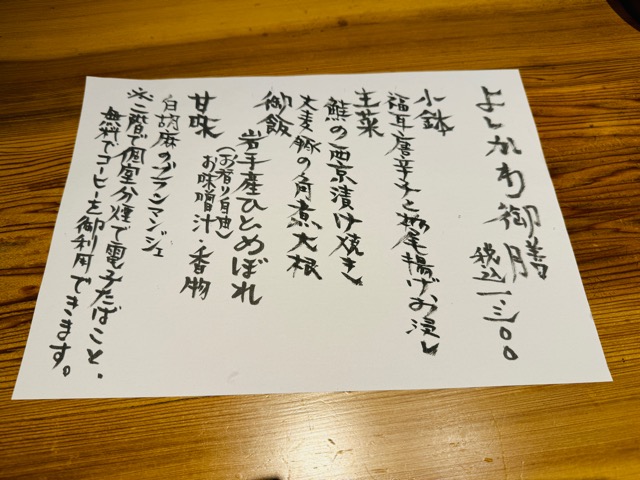 よしかわ御膳
税込一三〇〇
小鉢
福耳唐辛子と栃尾揚げお浸し
主菜
鮭の西京漬け焼き
大麦豚の角煮大根
御飯
岩手産ひとめぼれ
(お替り自由)
お味噌汁・香物
甘味
白胡麻のブランマンジェ
※二階で個室分煙で電子たばこと、
無料でコーヒーを御利用できます。